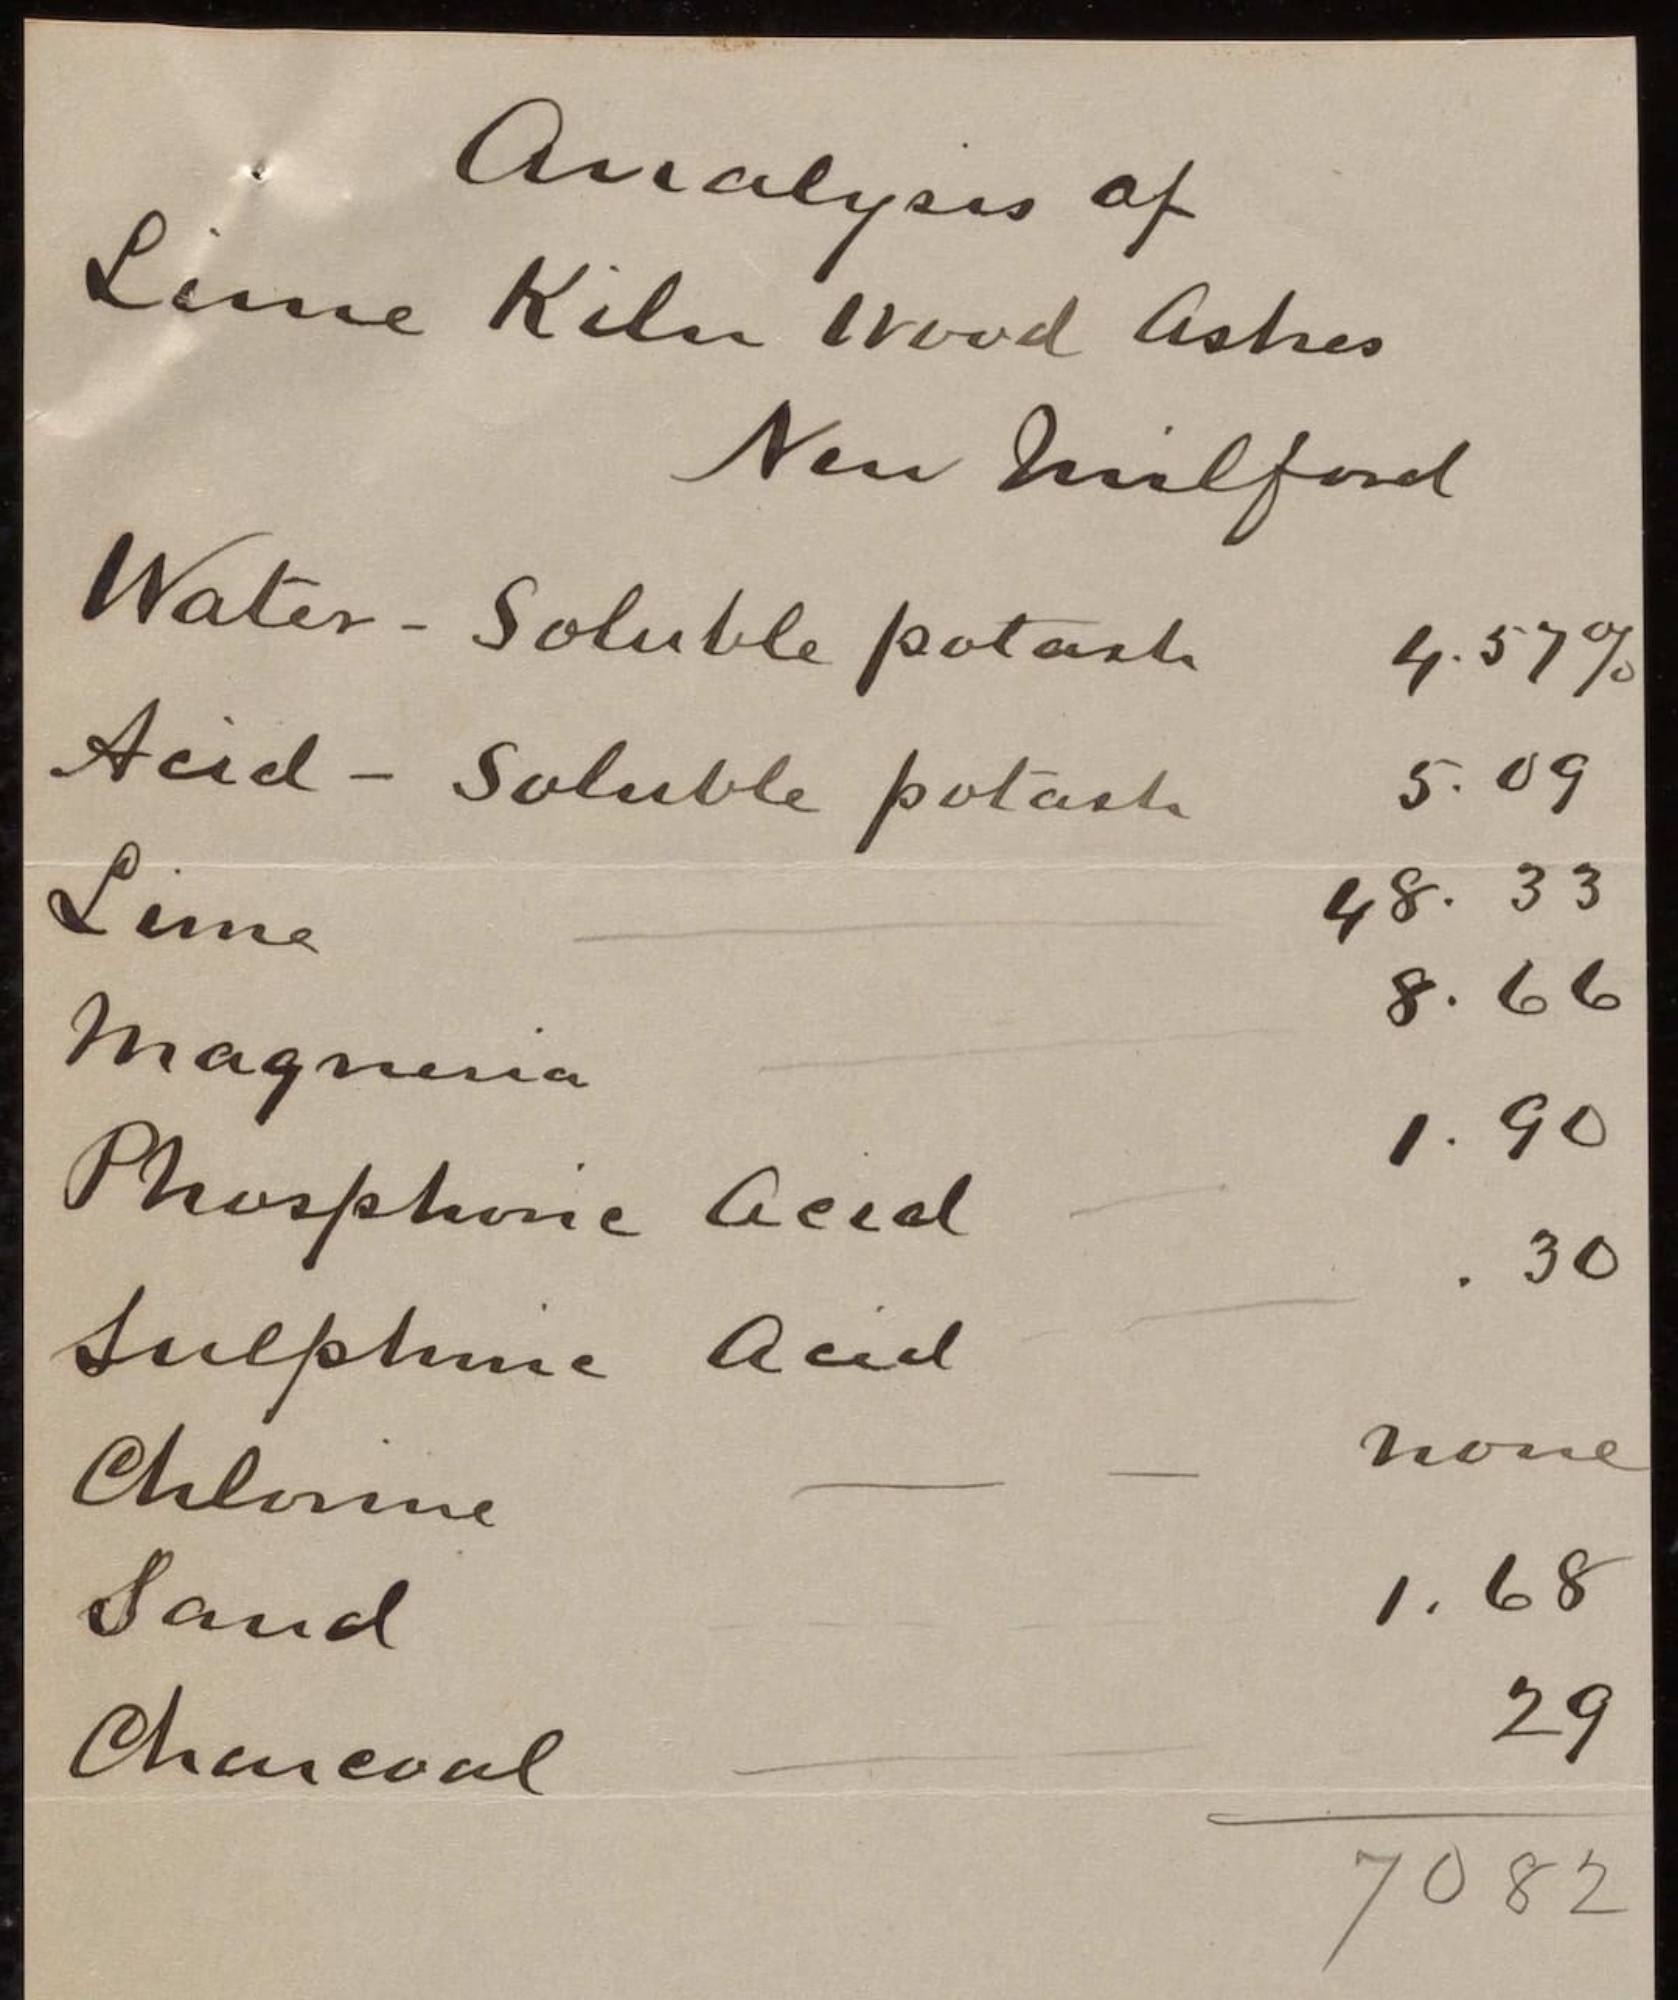 Analysis of
Lime Kiln Wood Ashes
New Milford
Water - Soluble potash 4.57%
Acid - Soluble potash 5.09
Lime 48.33
Magnesia 8.66
Phosphoric Acid 1.90
Sulphuric Acid .30
Chlorine none
Sand 1.68
Charcoal 29
7082